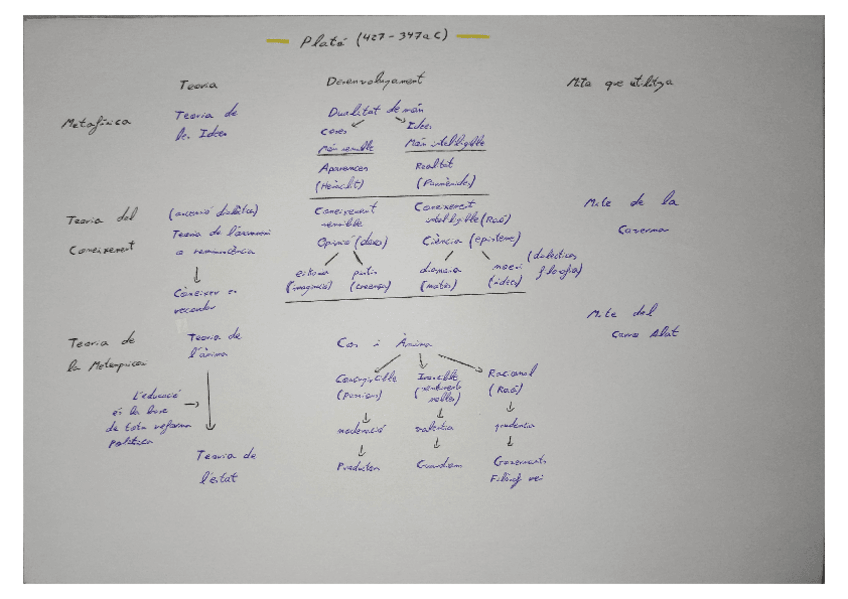 Plató (427-347 a C)
Teoria Desenvolupament Mite que utilitza
Metafísica Teoria de les Idees Dualitat de món
Coses Idees
Món sensible Món intel·ligible
Aparences Realitat
(Heràclit) (Parmènides)
Teoria del Coneixement (ascensió dialèctica) Coneixement sensible Coneixement intel·ligible (Raó) Mite de la Caverna
Teoria de l'anamnesi o reminiscència Opinió (doxa) Ciència (episteme)
eikasia pistis dianoia noesi (dialèctica i filosofia)
(imaginació) (creença) (mates) (idees)
Conèixer és recordar
Teoria de la Metempsicosi Teoria de l'ànima Cos i Ànima Mite del Carro Alat
Concupiscible Irascible Racional
(Passions) (sentiments nobles) (Raó)
L'educació és la base de tota reforma política
moderació valentia prudència
Teoria de l'estat
Productors Guardians Governants
Filòsof rei